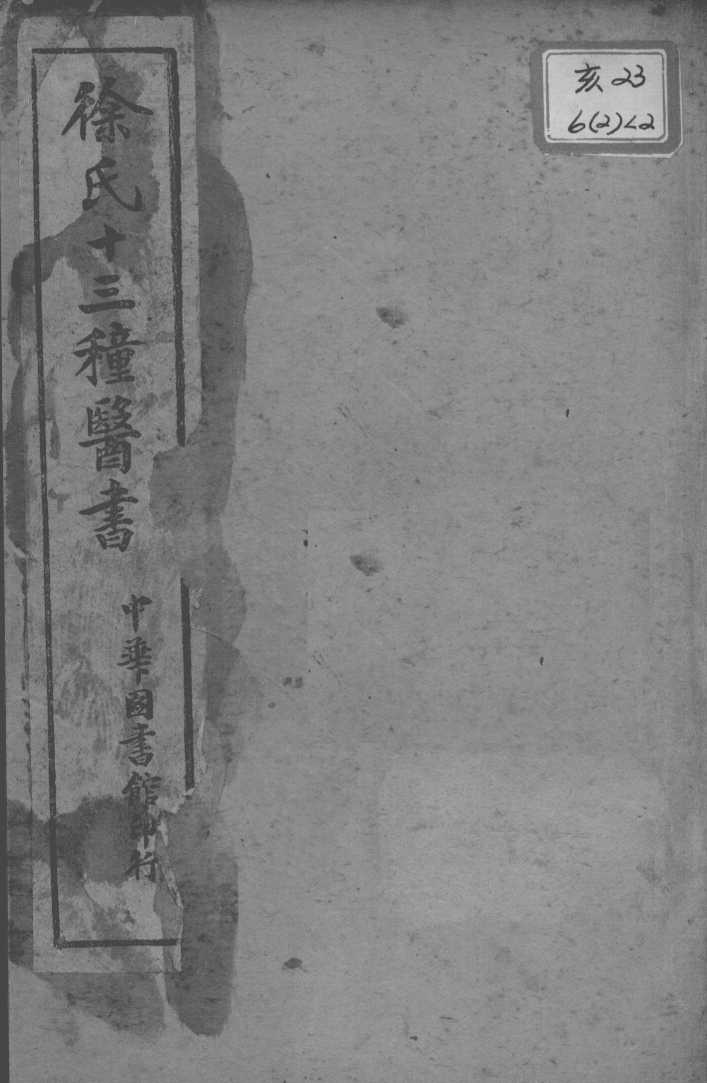 徐氏十三種醫書
中華圖書館印行
亥23
6(2)<2